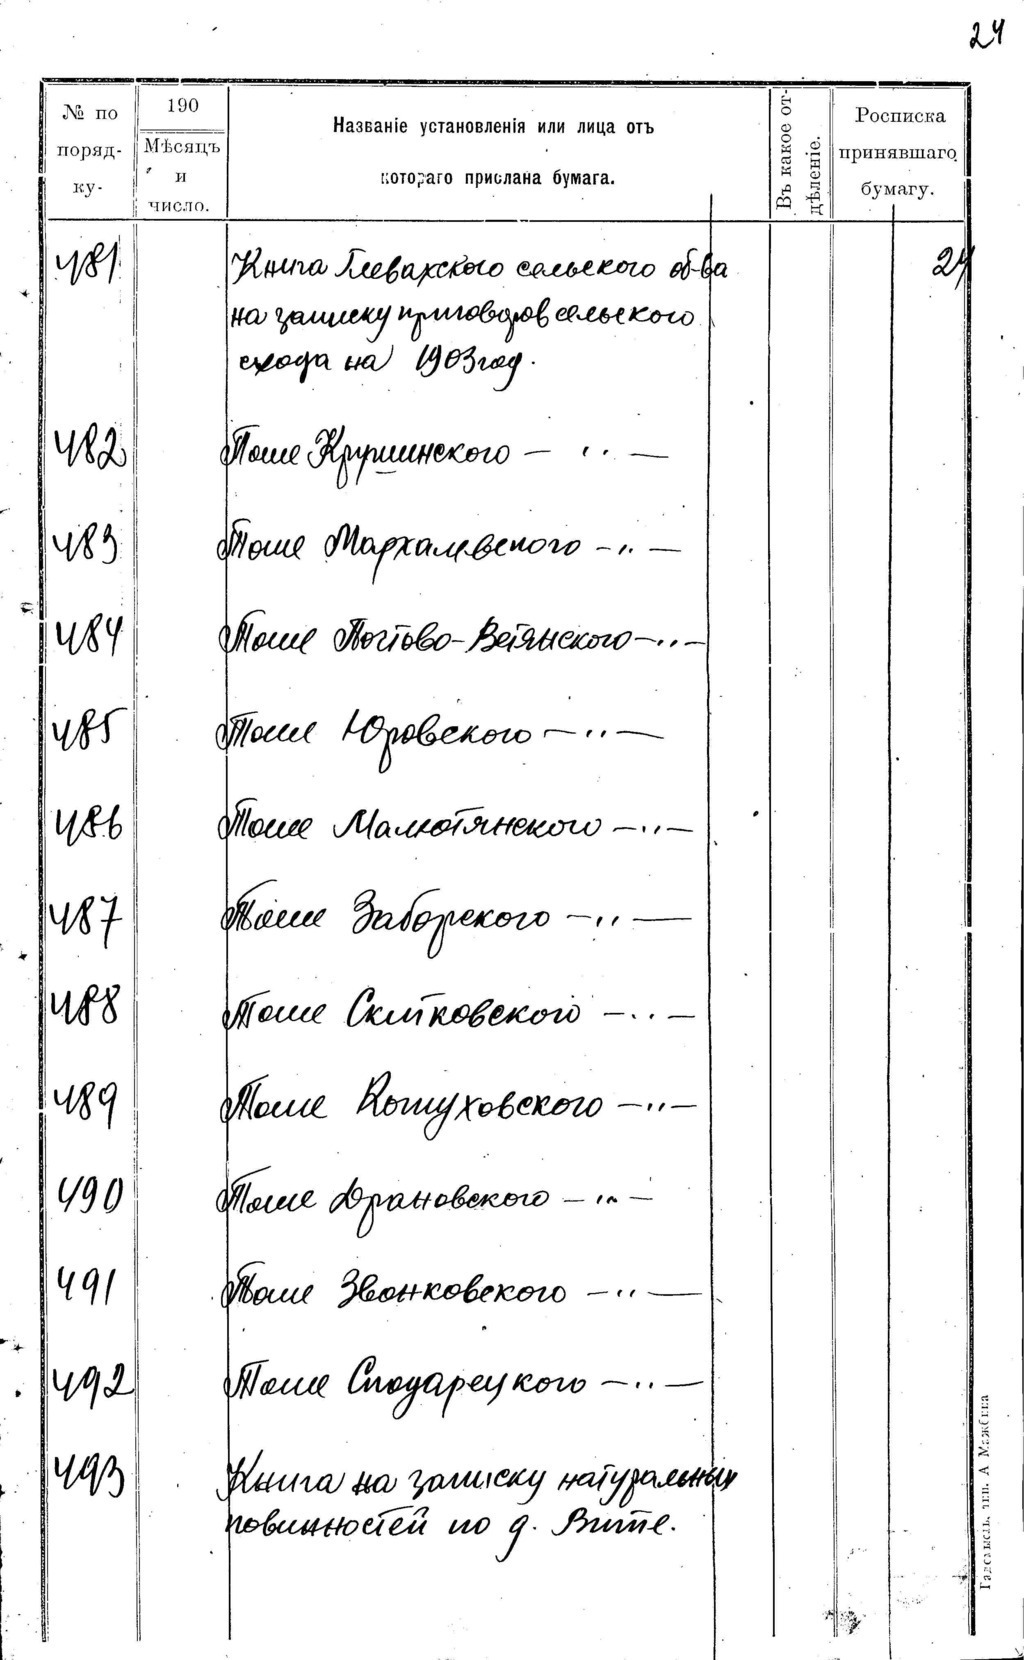 24
№ по поряд- ку-
190
Мѣсяцъ и число.
Названіе установленія или лица отъ
котораго прислана бумага.
Въ какое от- дѣленіе.
Росписка принявшаго бумагу.
481 Книга Глевахского сельского об-ва 24
на записку приговоров сельского
схода на 1903 год.
482 Тоже Крушинского — " —
483 Тоже Мархалевского — " —
484 Тоже Почтово-Ветянского — " —
485 Тоже Юровского — " —
486 Тоже Малютянского — " —
487 Тоже Заборского — " —
488 Тоже Скитковского — " —
489 Тоже Кожуховского — " —
490 Тоже Драновского — " —
491 Тоже Звонковского — " —
492 Тоже Сподарецкого — " —
493 Книга на записку натуральных
повинностей по д. Вите.
тип. А